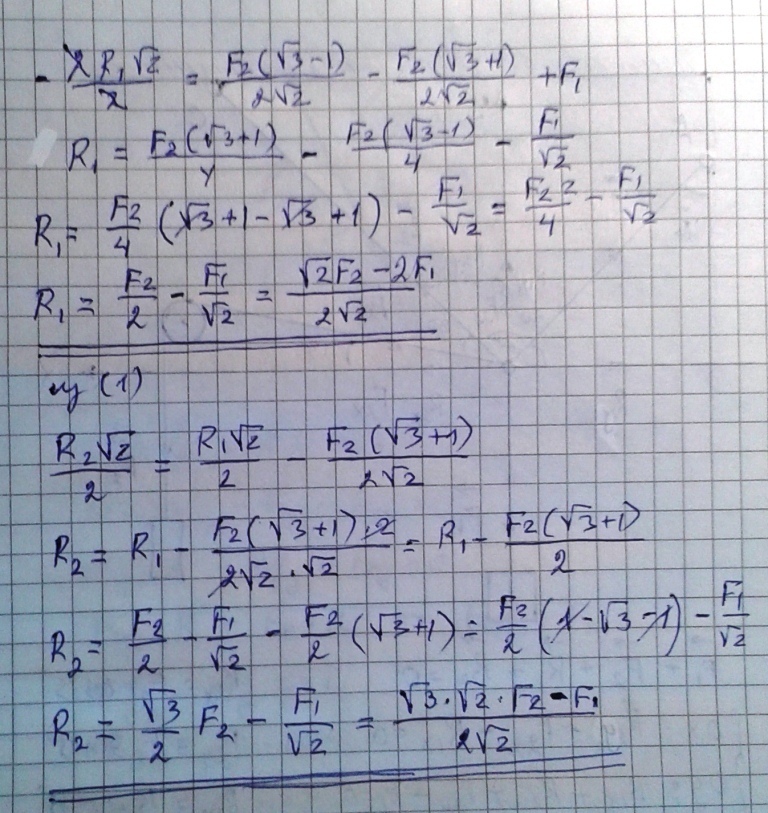 - 2R₁√2/2 = F₂(√3-1)/2√2 - F₂(√3+1)/2√2 + F₁
R₁ = F₂(√3+1)/4 - F₂(√3-1)/4 - F₁/√2
R₁ = F₂/4 (√3+1-√3+1) - F₁/√2 = F₂2/4 - F₁/√2
R₁ = F₂/2 - F₁/√2 = √2F₂-2F₁/2√2
(1)
R₂√2/2 = R₁√2/2 - F₂(√3+1)/2√2
R₂ = R₁ - F₂(√3+1)·2/2√2·√2 = R₁ - F₂(√3+1)/2
R₂ = F₂/2 - F₁/√2 - F₂/2 (√3+1) = F₂/2 (1-√3-1) - F₁/√2
R₂ = √3/2 F₂ - F₁/√2 = √3·√2·F₂-F₁/2√2